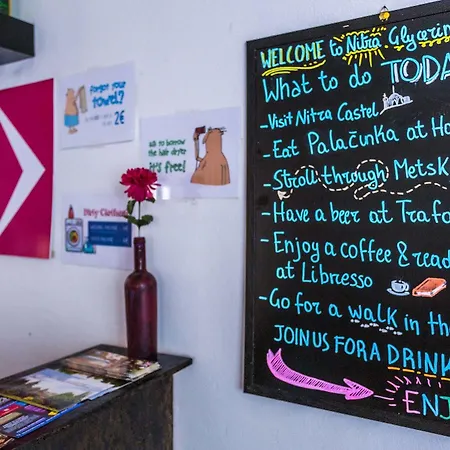 forgot your
towel?
2€
to borrow
the hair dryer
it's free!
Dirty Clothes
WELCOME to Nitra Glycerin
What to do TODA
- Visit Nitra Castel
- Eat Palačinka at Ho
- Stroll through Metsk
- Have a beer at Trafo
- Enjoy a coffee & read
at Libresso
- Go for a walk in the
JOIN US FOR A DRINK
ENJ